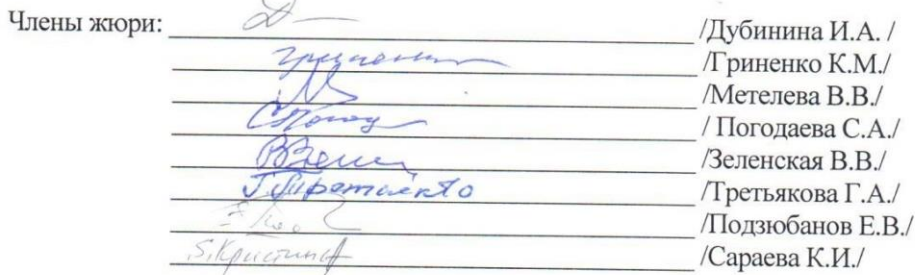 Члены жюри: /Дубинина И.А. /
/Гриненко К.М./
/Метелева В.В./
/ Погодаева С.А./
/Зеленская В.В./
/Третьякова Г.А./
/Подзюбанов Е.В./
S.Кристина /Сараева К.И./